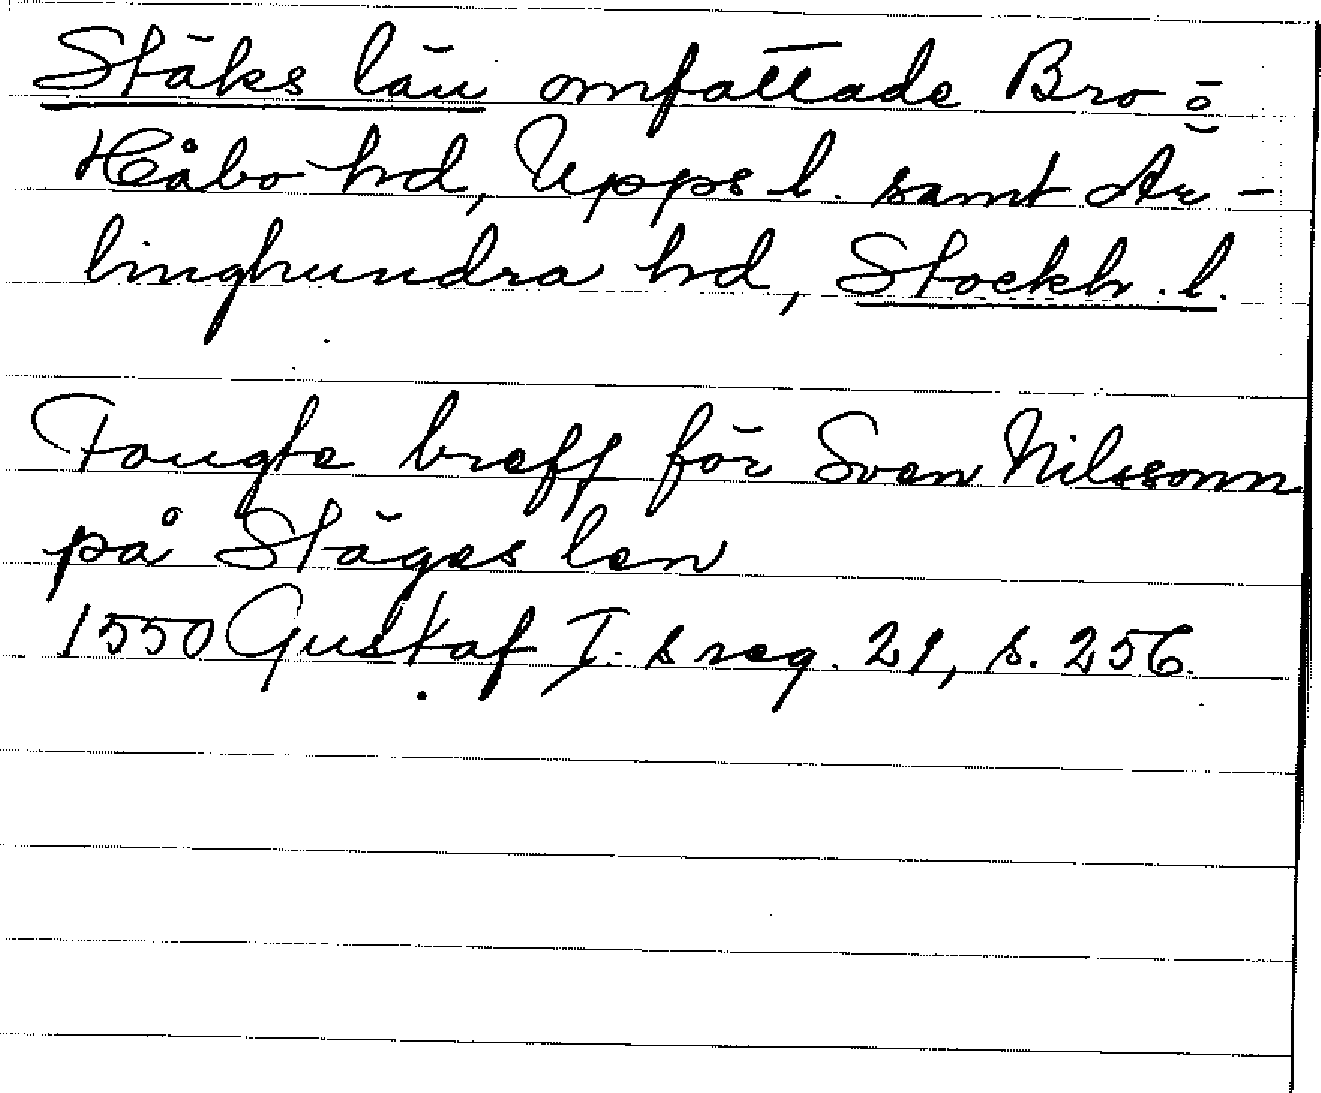 Stäks län omfattade Bro o
Håbo hd, Upps l. samt Är-
linghundra hd, Stockh. l.
Fougte breff för Sven Nilssonn
på Stäges len
1550 Gustaf I:s reg. 21, s. 256.